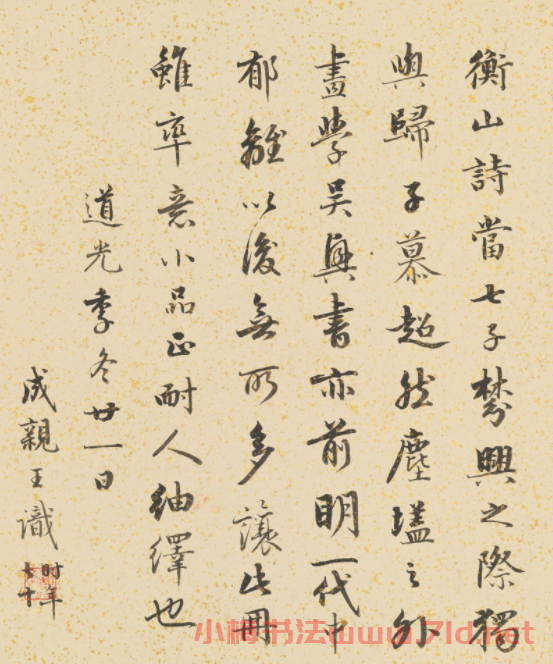 衡山詩當七子棼興之際獨
與歸子慕超然塵壒之外
畫學吳興書亦前明一代中
郁離以後無所多讓此冊
雖率意小品正耐人紬繹也
道光季冬廿一日
成親王識
時年
七十
小梅书法www.71d.net